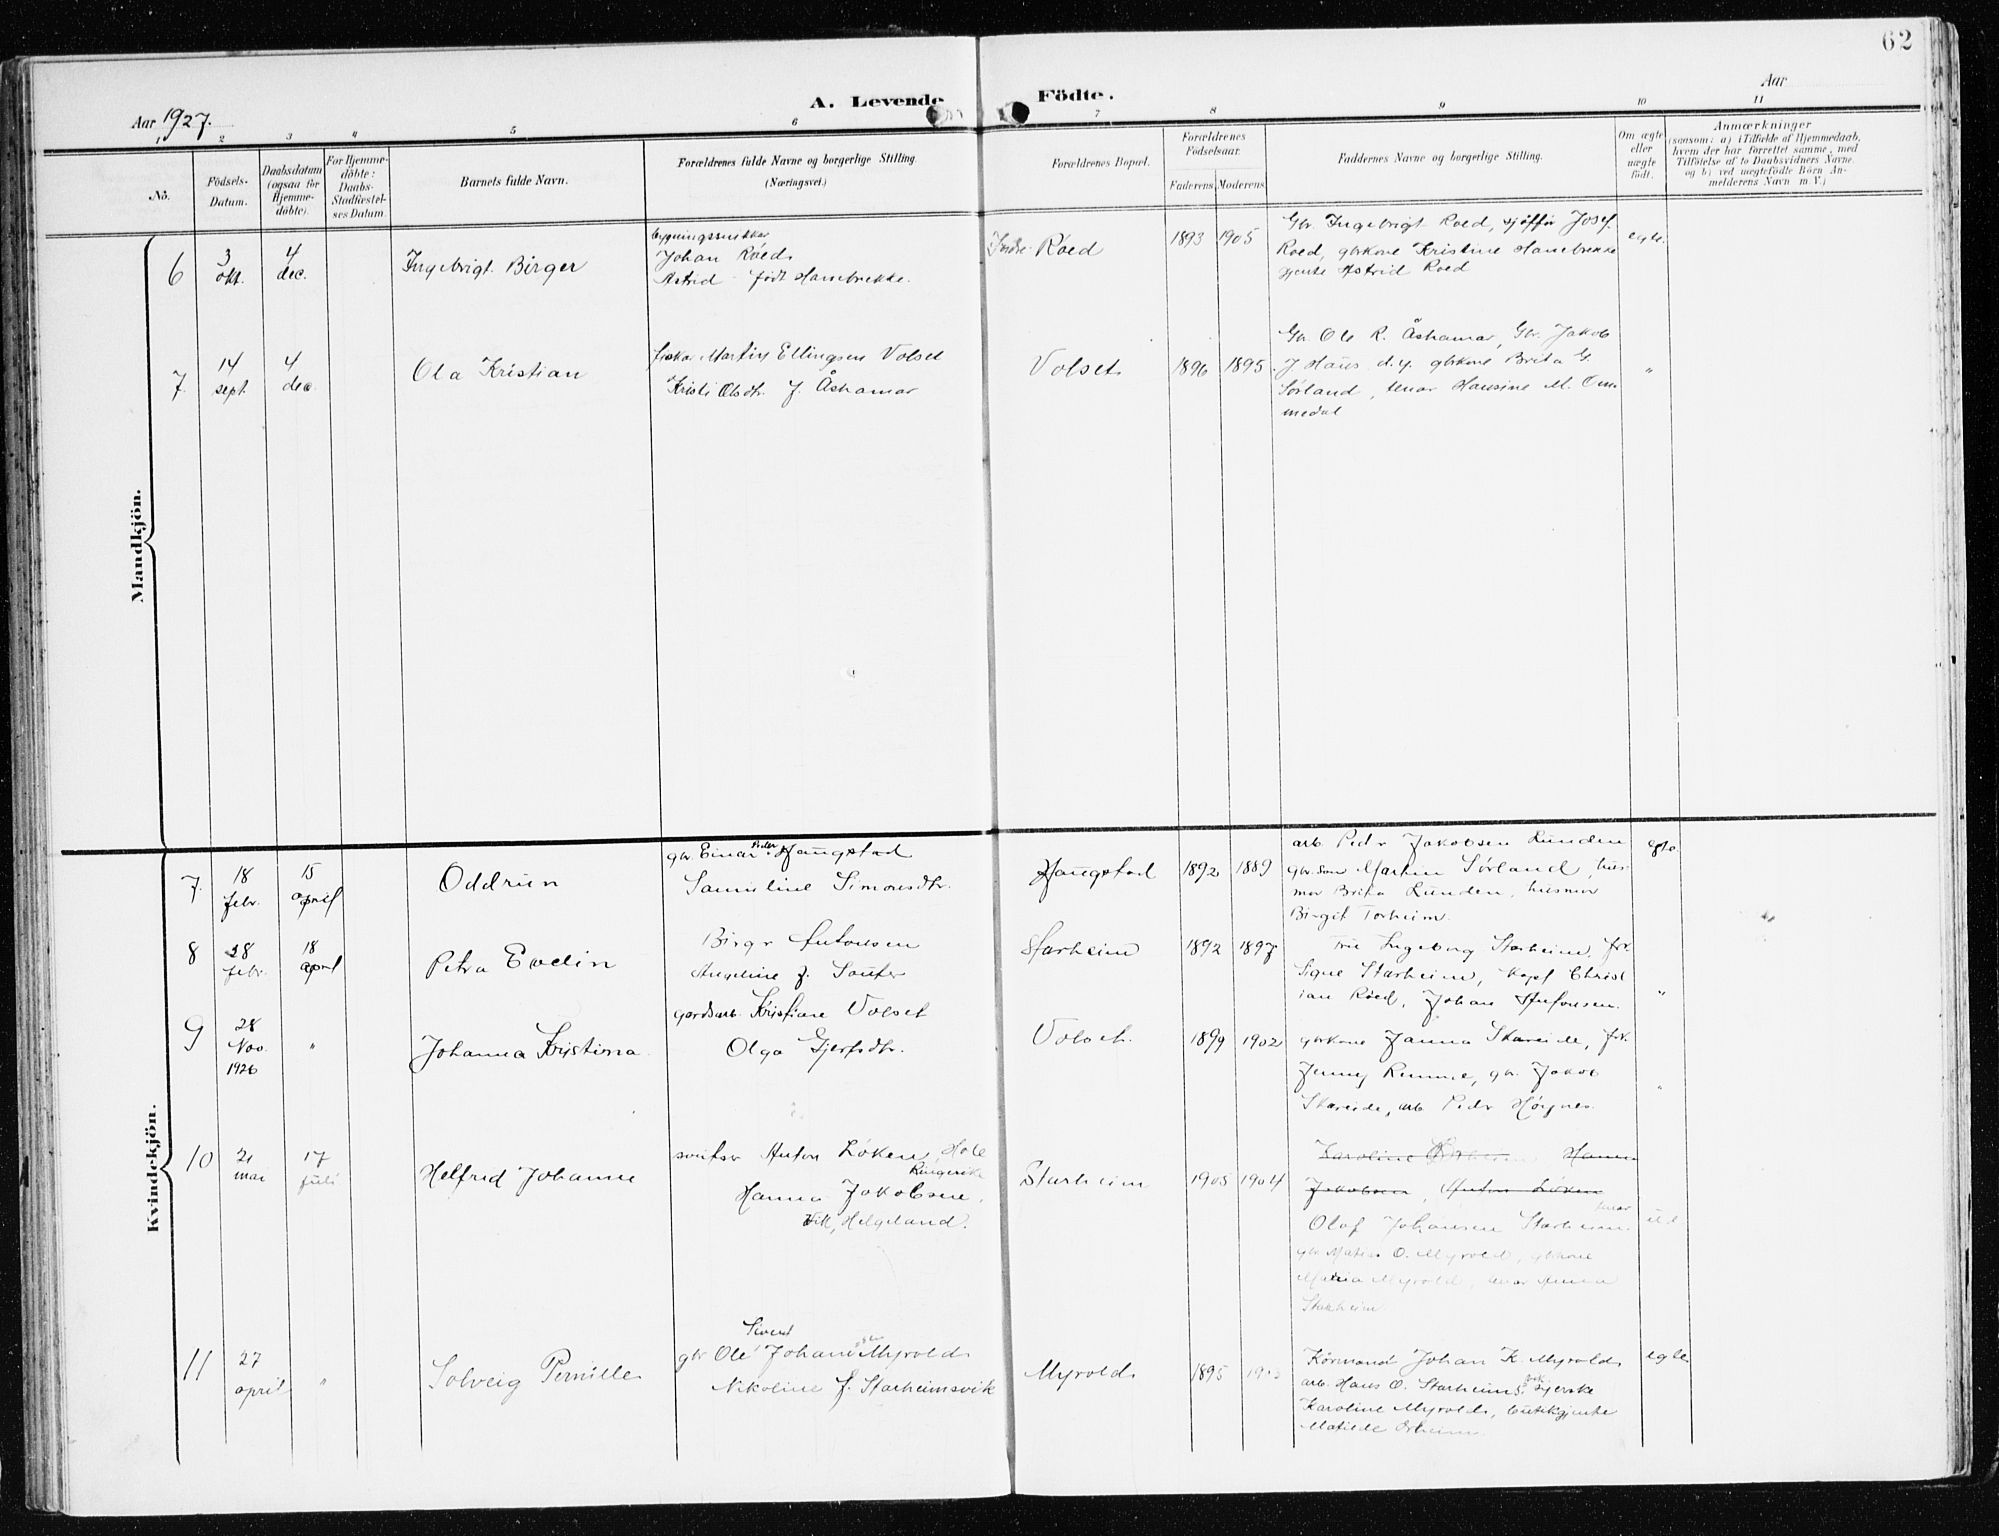 62
A. Levende Födte.
Aar 1927.
Aar
1 2 3 4 5 6 7 8 9 10 11
No.
Födsels-
Datum.
Daabsdatum
(ogsaa for
Hjemme-
döbte).
For Hjemme-
döbte:
Daabs-
Stadfæstel-
ses Datum.
Barnets fulde Navn.
Forældrenes fulde Navne og borgerlige Stilling.
(Næringsvei.)
Forældrenes Bopæl.
Forældrenes
Födselsaar.
Faderens Moderens
Faddernes Navne og borgerlige Stilling.
Om ægte
eller
uægte
födt.
Anmærkninger
(saasom: a) i Tilfælde af Hjemmedaab,
hvem der har forrettet samme, med
Tilföielse af to Daabsvidners Navne.
og b) ved uægtefödte Börn An-
melderens Navn m. V.)
Mandkjön.
6
3
okt.
4
dec.
Ingebrigt Birger
bygningssnikkar
Johan Röed
Astrid født Hanebrekke.
Indre Röed
1893 1905
Gbr. Ingebrigt Roed, sjøffør Josef
Roed, gbrkone Kristine Hanebrekke
gjente Astrid Roed
egte.
7.
14
sept.
4
dec.
Ola Kristian
fiskar Martin Ellingsen Volset
Kristi Olsdtr. f. Åshamar
Volset
1896 1895.
Gbr Ole R. Åshamar, Gbr. Jakob
J Haus d.y. gbrkone Brita G.
Sørland, tenar Hansine M. Om
medal
"
Kvindekjön.
7.
18
febr.
15
april
Oddrun
gbr Einar Peder Haugstad
Samuline Simonsdtr.
Haugstad
1892 1889
arb. Pedr Jakobsen Runden
gbr.son Martin Sørland, hus-
mor Brita Runden, husmor
Birgit Torheim.
egte
8
28
febr.
18
april
Petra Evelin
Birgr Antonsen
Angeline f. Souter
Starheim
1892 1897
Fru Ingeborg Starheim, frk
Signe Starheim, Kapt Christ
ian Röed, Johan Antonsen.
"
9
28
Nov.
1926
"
Johanna Kristina
gardsarb. Kristiane Volset
Olga Gjertsdtr.
Volset.
1899 1902
gbrkone Janna Skareide, frk.
Jenny Rimme, gbr. Jakob
Skareide, arb Pedr Høynes.
"
10
21
mai
17
juli
Helfred Johanne
sveitser Anton Løken, Hole
Ringerike
Hanna Jakobsene,
Vik, Helgeland.
Starheim
1905 1904
Karoline Hanna
Jakobsen, Anton Løken
tenar
Olaf Johansen Starheim
gbr Matias O. Myrold, gbkone
Maria Myrold, tenar Anna
Starheim
11
27
april
"
Solveig Pernille
Sivert
gbr Ole Johansen Myrold
Nikoline f. Starheimsvik
Myrold
1895
Körmand Johan K. Myrold
arb. Hans O. Starheimsvik, syerske
Karoline Myrold, butikgjente
Matilde Orheim
egte